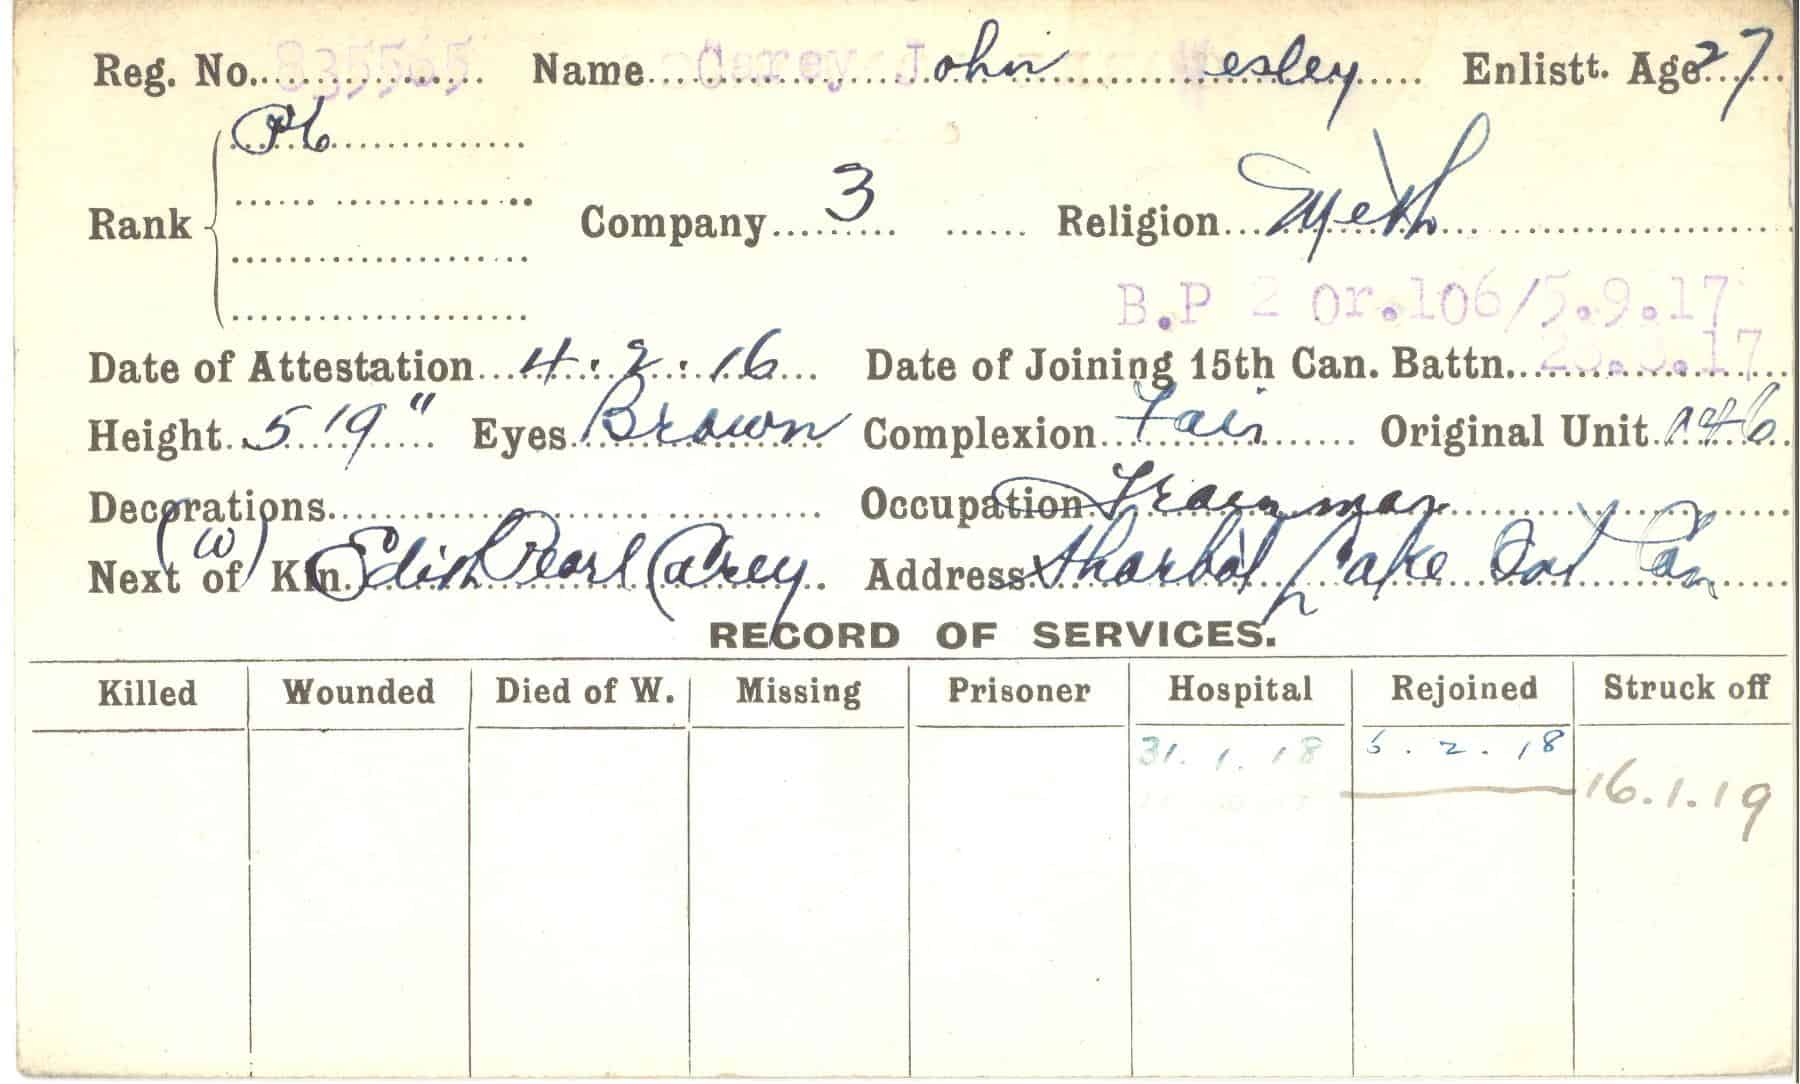 Reg. No. 835565 Name Carey John esley Enlistt. Age 27
Rank Pte
Company 3 Religion Meth
B.P 2 Or.106/5.9.17
Date of Attestation 4.2.16 Date of Joining 15th Can. Battn. .17
Height 5'9" Eyes Brown Complexion Fair Original Unit 146
Decorations Occupation Trainman
(W)
Next of Kin Edith Pearl Carey Address Sharbot Lake Ont Can
RECORD OF SERVICES.
Killed Wounded Died of W. Missing Prisoner Hospital Rejoined Struck off
31.1.18 5.2.18
16.1.19